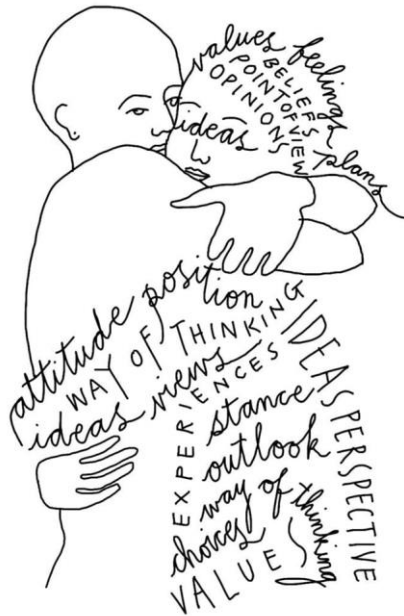 values feelings
BELIEFS
POINT OF VIEW
OPINIONS
ideas
plans
attitude position
WAY OF THINKING
ideas views
EXPERIENCES
IDEAS PERSPECTIVE
stance
outlook
way of thinking
choices
VALUES